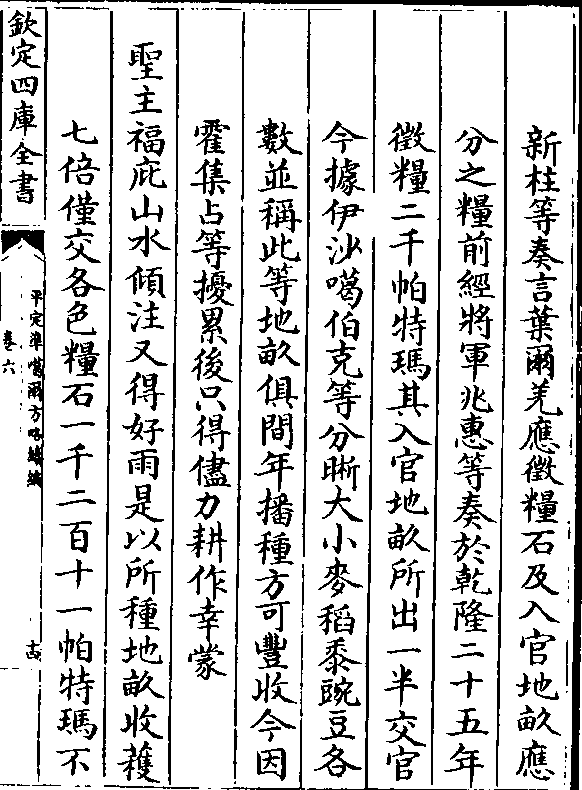 新柱等奏言葉爾羌應徵糧石及入官地畝應
分之糧前經將軍兆惠等奏於乾隆二十五年
徵糧二千帕特瑪其入官地畝所出一半交官
今據伊沙噶伯克等分晰大小麥稻黍豌豆各
數並稱此等地畝俱間年播種方可豐收今因
霍集占等擾累後只得儘力耕作幸蒙
聖主福庇山水傾注又得好雨是以所種地畝收穫
七倍僅交各色糧石一千二百十一帕特瑪不
欽定四庫全書
平定準噶爾方略續編
卷六
古